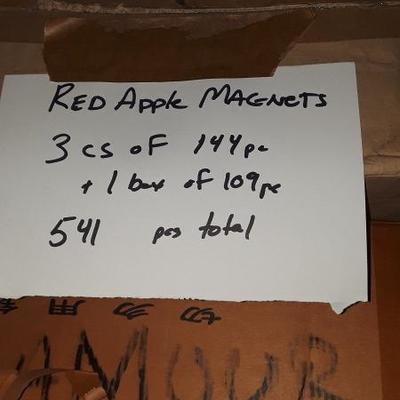 RED Apple MAGNETS
3 cs of 144pc
+ 1 box of 109pc
541 pcs total
AMOUR